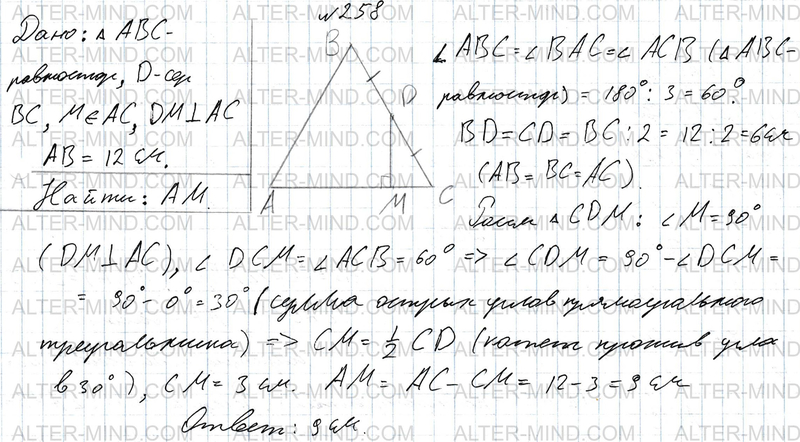 №258
Дано: △ ABC-
равностор, D-сер
BC, M∈AC, DM⊥AC
AB = 12 см.
Найти: AM.
B
D
A
M
C
∠ABC=∠BAC=∠ACB (△ABC-
равностор) = 180°: 3 = 60°.
BD=CD= BC:2 = 12:2=6см
(AB=BC=AC).
Рассм △CDM: ∠M=90°
(DM⊥AC), ∠DCM=∠ACB=60° => ∠CDM = 90°-∠DCM =
= 90°- 0°=30° (сумма острых углов прямоугольного
треугольника) => CM=1/2 CD (катет против угла
в 30°), CM= 3 см. AM= AC-CM= 12-3=9 см
Ответ: 9 см.
ALTER-MIND.COM